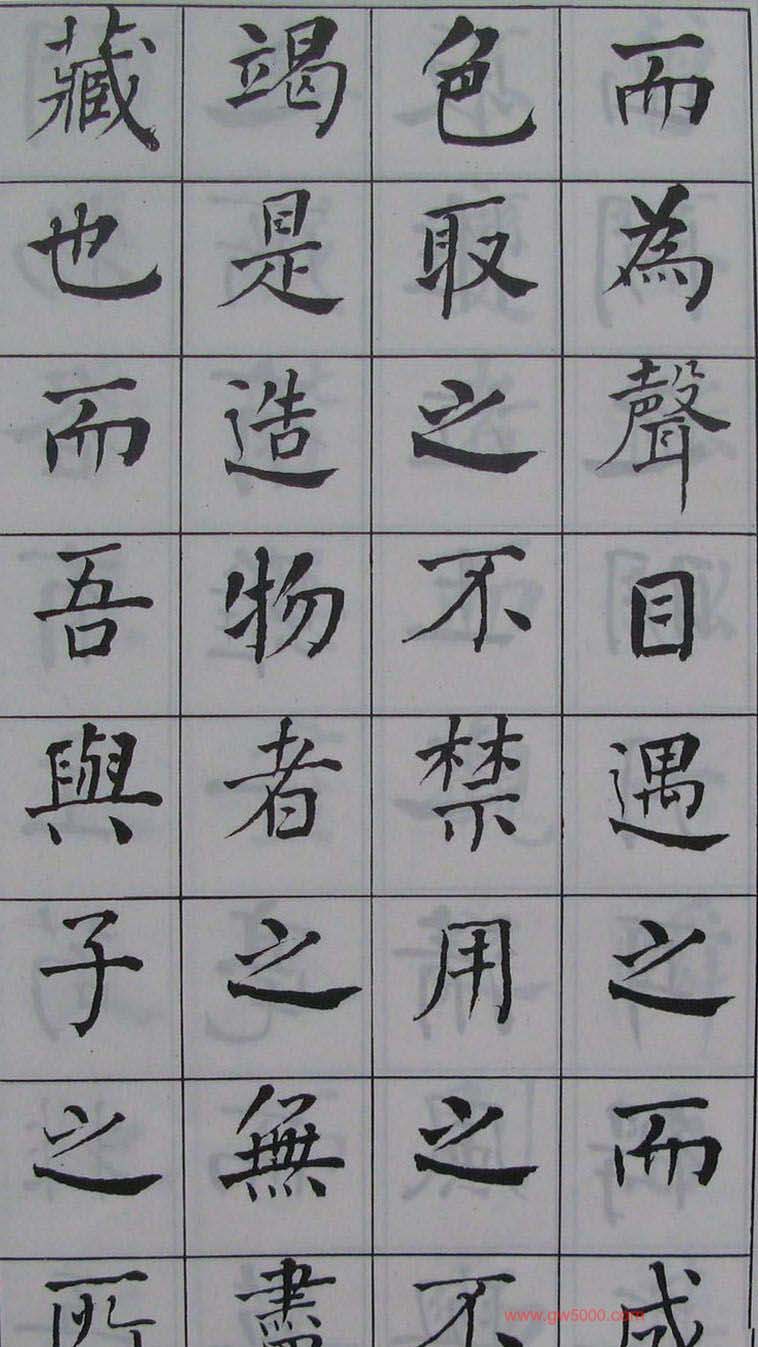 而為聲目遇之而成
色取之不禁用之不
竭是造物者之無盡
藏也而吾與子之所
www.gw5000.com